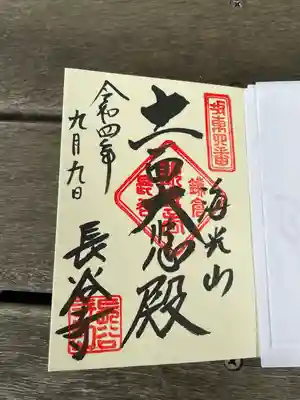 坂東四番
海光山
十一面大悲殿
鎌倉
長谷
長谷寺
令和四年
九月九日